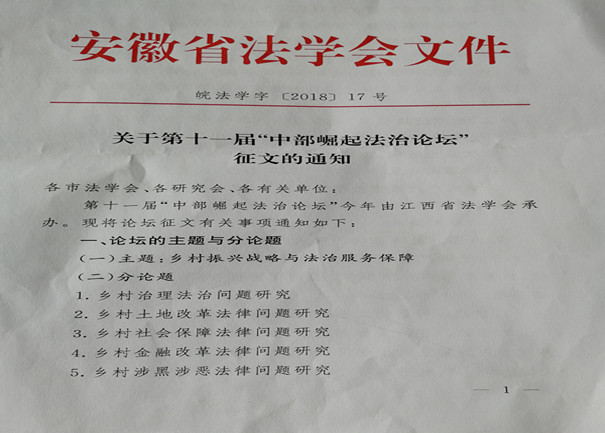 安徽省法学会文件
皖法学字〔2018〕17号
关于第十一届“中部崛起法治论坛”
征文的通知
各市法学会、各研究会、各有关单位:
第十一届“中部崛起法治论坛”今年由江西省法学会承
办。现将论坛征文有关事项通知如下:
一、论坛的主题与分论题
(一)主题:乡村振兴战略与法治服务保障
(二)分论题
1.乡村治理法治问题研究
2.乡村土地改革法律问题研究
3.乡村社会保障法律问题研究
4.乡村金融改革法律问题研究
5.乡村涉黑涉恶法律问题研究
— 1